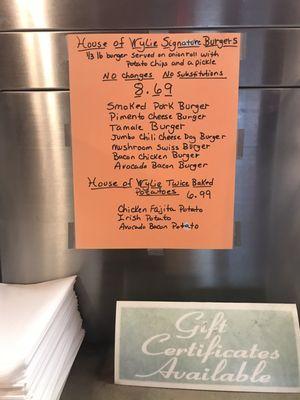 House of Wylie Signature Burgers
1/3 lb burger served on onion roll with
Potato chips and a pickle
No changes No Substitutions
8.69
Smoked Pork Burger
Pimento Cheese Burger
Tamale Burger
Jumbo Chili Cheese Dog Burger
Mushroom Swiss Burger
Bacon Chicken Burger
Avocado Bacon Burger
House of Wylie Twice Baked
Potatoes 6.99
Chicken Fajita Potato
Irish Potato
Avocado Bacon Potato
Gift
Certificates
Available